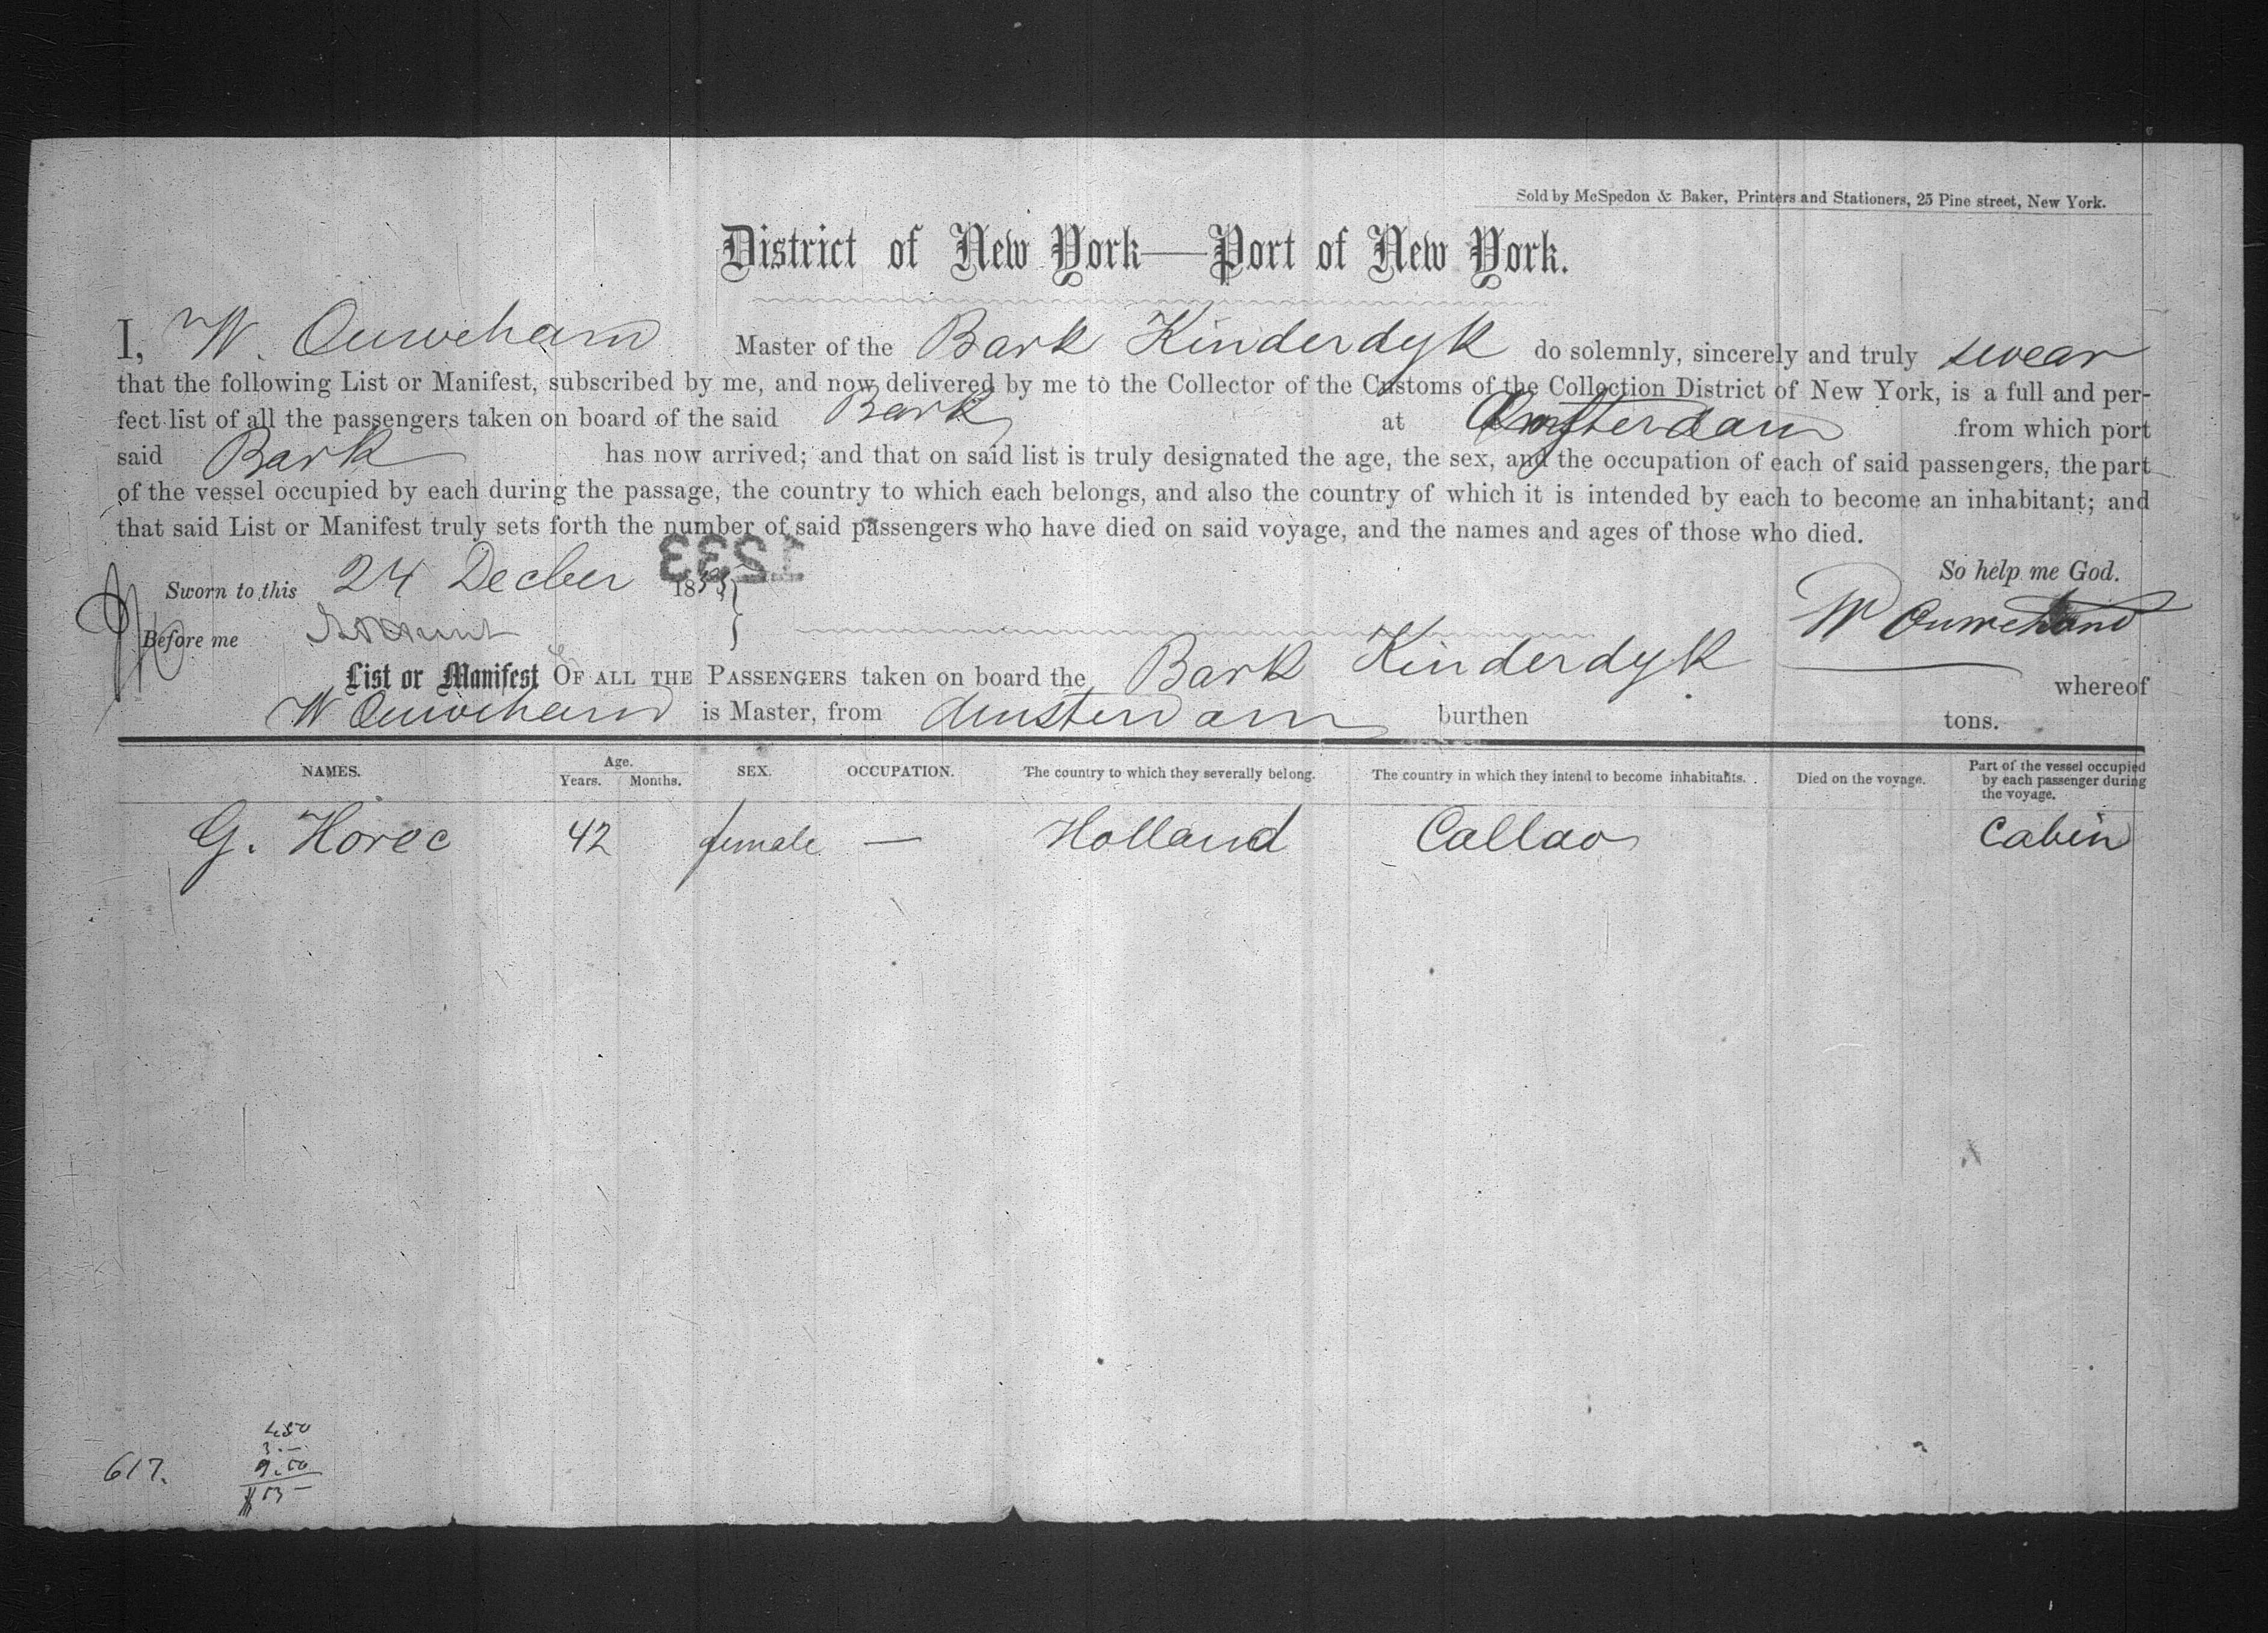 Sold by McSpedon & Baker, Printers and Stationers, 25 Pine street, New York.
District of New York—Port of New York.
I, W. Ouwehand Master of the Bark Kinderdyk do solemnly, sincerely and truly swear
that the following List or Manifest, subscribed by me, and now delivered by me to the Collector of the Customs of the Collection District of New York, is a full and per-
fect list of all the passengers taken on board of the said Bark at Amsterdam from which port
said Bark has now arrived; and that on said list is truly designated the age, the sex, and the occupation of each of said passengers, the part
of the vessel occupied by each during the passage, the country to which each belongs, and also the country of which it is intended by each to become an inhabitant; and
that said List or Manifest truly sets forth the number of said passengers who have died on said voyage, and the names and ages of those who died.
1233
So help me God.
Sworn to this 24 Decber 1853
W Ouwehand
Before me
List or Manifest OF ALL THE PASSENGERS taken on board the Bark Kinderdyk whereof
W Ouwehand is Master, from Amsterdam burthen tons.
NAMES. Age. Years. Months. SEX. OCCUPATION. The country to which they severally belong. The country in which they intend to become inhabitants. Died on the voyage. Part of the vessel occupied by each passenger during the voyage.
G. Horec 42 female — Holland Callao Cabin
617.
450
3.—
9.50